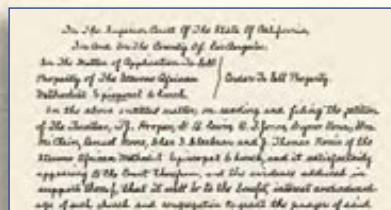 In The Superior Court Of The State Of California,
In And For The County Of Los Angeles.
In The Matter of Application To Sell
Property of The Stevens African
Methodist Episcopal Church
Order To Sell Property.
In the above entitled matter, on reading and filing the petition
of The Trustees, J. Thomas of the
Stevens African Methodist Episcopal Church, and it satisfactorily
appearing to the Court therefrom, and the evidence adduced in
support thereof, that it will be to the benefit, interest and advant-
age of said church and congregation to grant the prayer of said